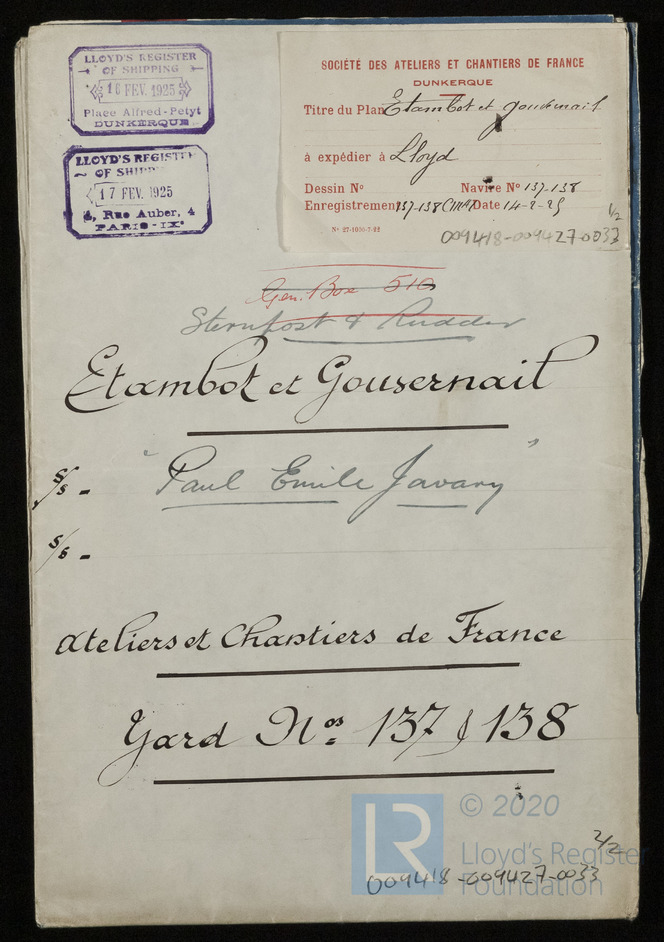 LLOYD'S REGISTER
OF SHIPPING
16 FEV. 1925
Place Alfred-Petyt
DUNKERQUE
LLOYD'S REGISTER
OF SHIPP
17 FEV. 1925
4, Rue Auber, 4
PARIS-IXe
SOCIÉTÉ DES ATELIERS ET CHANTIERS DE FRANCE
DUNKERQUE
Titre du Plan Etambot et gouvernail
à expédier à Lloyd
Dessin No Navire No 137-138
Enregistrement 137-138 Date 14-2-25
No 27-1000-7-22
1/2
009418-009427-0033
Gen. Box 510
Sternpost & Rudder
Etambot et Gousernail
S/S - "Paul Emile Javary"
S/S -
Ateliers et Chantiers de France
Yard Nos. 137 & 138
© 2020
LR
Lloyd's Register
Foundation
2/2
009418-009427-0033